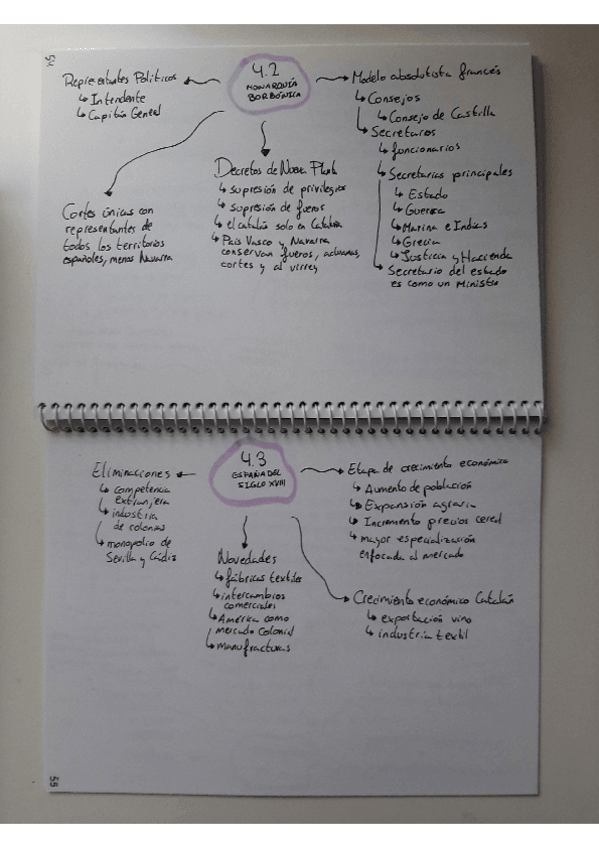 54
4.2
MONARQUÍA
BORBÓNICA
Representantes Políticos
↳ Intendente
↳ Capitán General
Cortes únicas con
representantes de
todos los territorios
españoles, menos Navarra
Decretos de Nueva Planta
↳ supresión de privilegios
↳ supresión de fueros
↳ el catalán solo en Cataluña
↳ País Vasco y Navarra
conservan fueros, aduanas,
cortes y al virrey
Modelo absolutista francés
↳ Consejos
↳ Consejo de Castilla
↳ Secretarios
↳ funcionarios
↳ Secretarías principales
↳ Estado
↳ Guerra
↳ Marina e Indias
↳ Grecia
↳ Justicia y Hacienda
↳ Secretario del estado
es como un Ministro
4.3
ESPAÑA DEL
SIGLO XVIII
Eliminaciones
↳ competencia
extranjera
↳ industria
de colonias
↳ monopolio de
Sevilla y Cádiz
Novedades
↳ fábricas textiles
↳ intercambios
comerciales
↳ América como
mercado colonial
↳ manufacturas
Etapa de crecimiento económico
↳ Aumento de población
↳ Expansión agraria
↳ Incremento precios cereal
↳ mayor especialización
enfocada al mercado
Crecimiento económico Catalán
↳ exportación vino
↳ industria textil
55